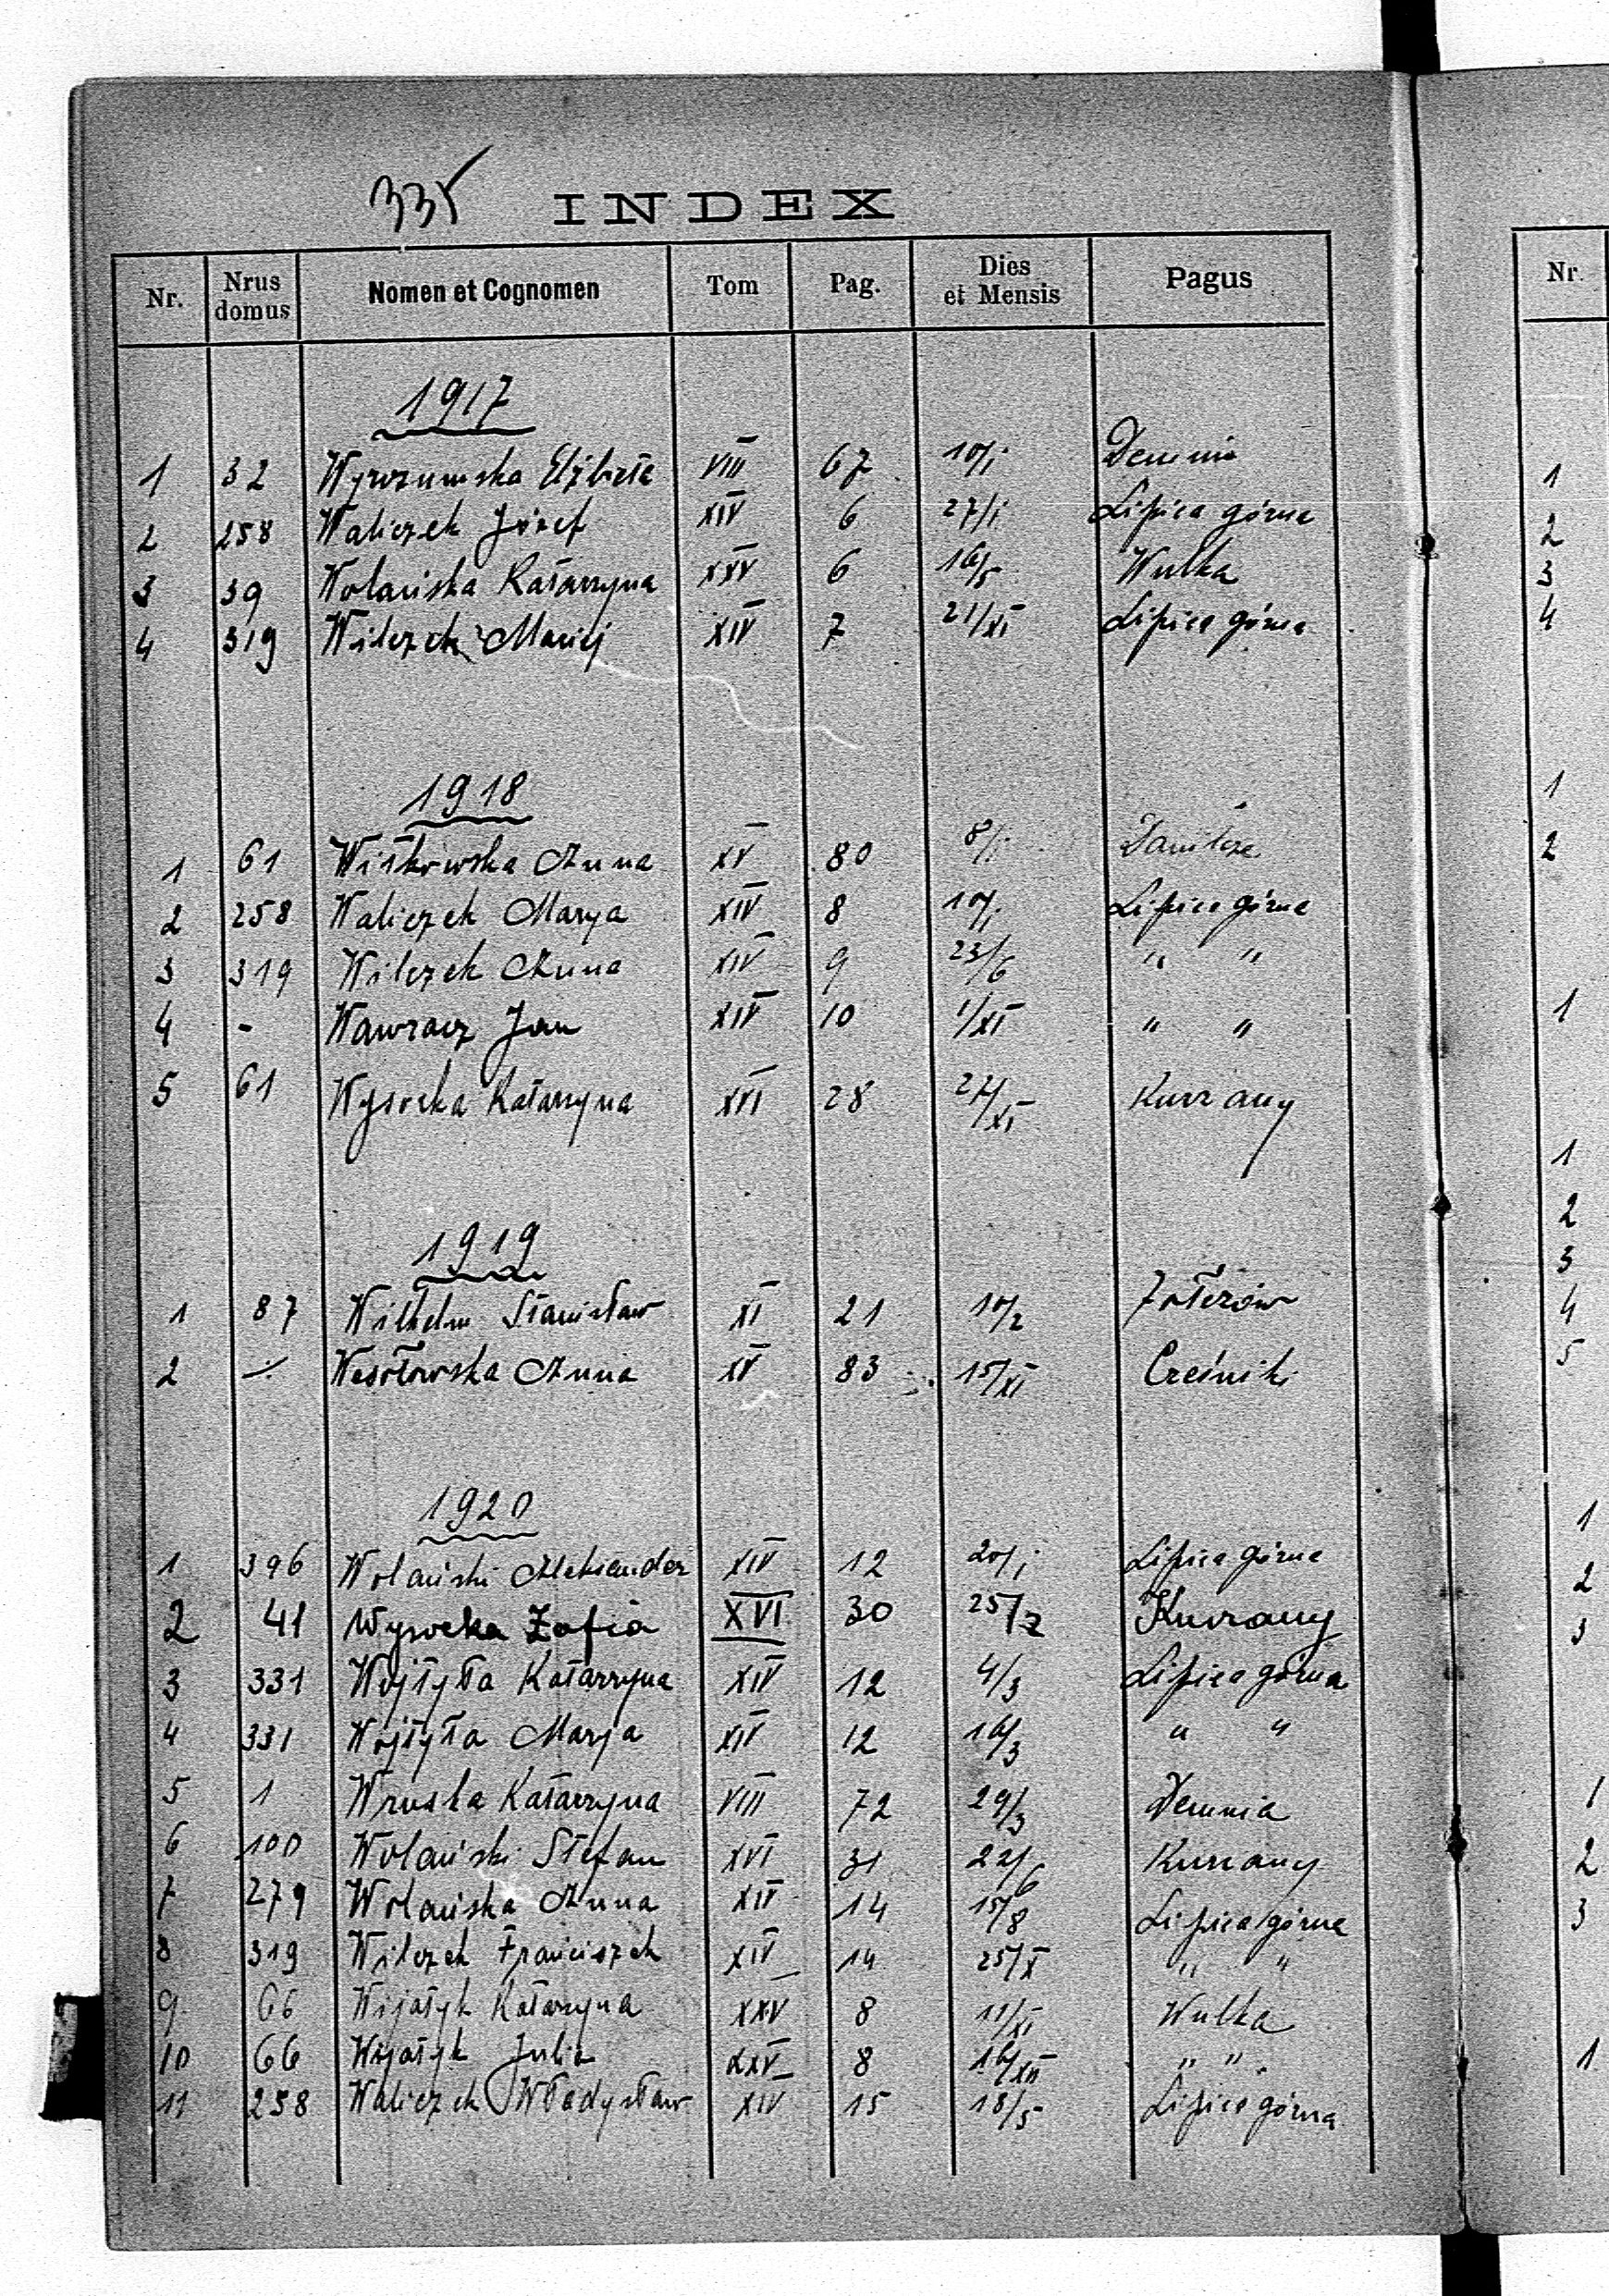 335 INDEX
Nr. Nrus domus Nomen et Cognomen Tom Pag. Dies et Mensis Pagus Nr.
1917
1 32 Wyrozumska Elżbieta VIII 67 10/I Demnia 1
2 258 Waliczek Józef XIV 6 27/I Lipica górna 2
3 39 Wolańska Katarzyna XXV 6 16/5 Wulka 3
4 319 Wilczek Maciej XIV 7 21/XI Lipica górna 4
1918
1
1 61 Witkowska Anna XV 80 8/I Danilcze 2
2 258 Waliczek Marya XIV 8 10/I Lipica górna
3 319 Wilczek Anna XIV 9 23/6 " "
4 - Wawracz Jan XIV 10 1/XI " " 1
5 61 Wysocka Katarzyna XVI 28 /XI Kurzany
1
2
1919
3
1 87 Wilhelm Stanisław XI 21 10/2 4
2 Wesołowska Anna XV 83 15/XI 5
1920
1
1 396 Wolański Aleksander XIV 12 20/I Lipica górna 2
2 41 Wysocka Zofia XVI 30 25/2 Kurzany 3
3 331 Wojtyła Katarzyna XIV 12 4/3 Lipica górna
4 331 Wojtyła Marja XIV 12 16/3 " "
5 1 Wruska Katarzyna VIII 72 29/3 Demnia 1
6 100 Wolański Stefan XVI 31 22/6 Kurzany 2
7 279 Wolańska Anna XIV 14 15/8 Lipica górna 3
8 319 Wilczek Franciszek XIV 14 25/X " "
9 66 Wijatyk Katarzyna XXV 8 11/XI Wulka
10 66 Wijatyk Julia XXV 8 16/XII " " 1
11 258 Waliczek Władysław XIV 15 18/5 Lipica górna